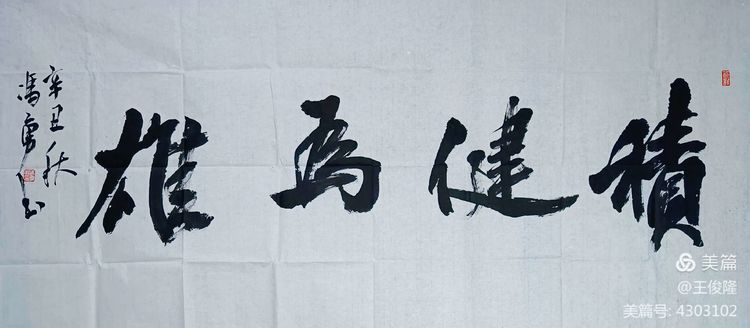 積健為雄
辛丑秋
馮勇书
美篇
@王俊隆
美篇号: 4303102